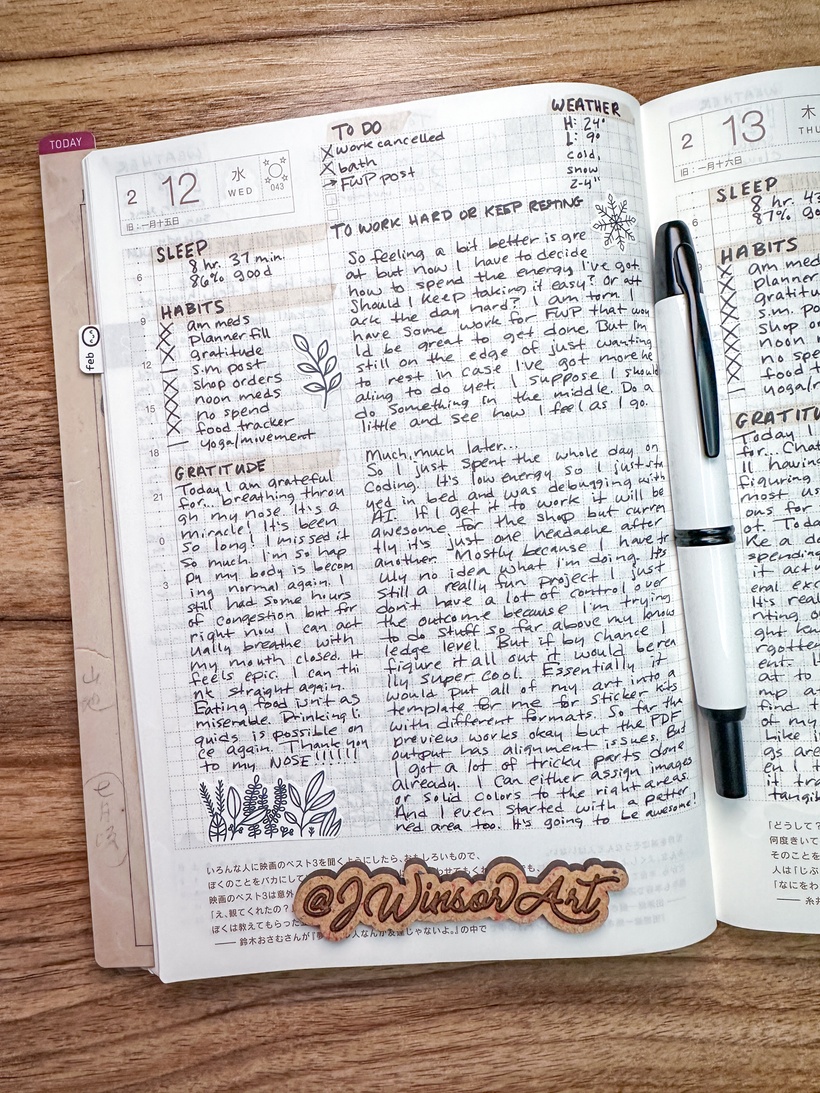 TODAY
2 12 水 WED 043
旧:一月十五日
SLEEP
8 hr. 37 min.
86% good
HABITS
X am meds
X planner fill
X gratitude
X s.m. post
X shop orders
X noon meds
X no spend
X food tracker
— yoga/mivement
6
9
12
15
18
21
0
3
feb
GRATITUDE
Today I am grateful
for... breathing throu
gh my nose. It's a
miracle! It's been
so long! I missed it
so much. I'm so hap
py my body is becom
ing normal again. I
still had some hours
of congestion but for
right now I can act
ually breathe with
my mouth closed. It
feels epic. I can thi
nk straight again.
Eating food isn't as
miserable. Drinking li
quids is possible on
ce again. Thank you
to my NOSE!!!!!!
TO DO
X work cancelled
X bath
→ FWP post
WEATHER
H: 24°
L: 9°
cold,
snow
2-4"
TO WORK HARD OR KEEP RESTING
So feeling a bit better is gre
at but now I have to decide
how to spend the energy I've got.
Should I keep taking it easy? Or att
ack the day hard? I am torn. I
have some work for FWP that wou
ld be great to get done. But I'm
still on the edge of just wanting
to rest in case I've got more he
aling to do yet. I suppose I should
do something in the middle. Do a
little and see how I feel as I go.
Much, much later...
So I just spent the whole day on
coding. It's low energy so I just sta
yed in bed and was debugging with
AI. If I get it to work it will be
awesome for the shop but curren
tly it's just one headache after
another. Mostly because I have tr
uly no idea what I'm doing. It's
still a really fun project I just
don't have a lot of control over
the outcome because I'm trying
to do stuff so far above my know
ledge level. But if by chance I
figure it all out it would be rea
lly super cool. Essentially it
would put all of my art into a
template for me for sticker kits
with different formats. So far the
preview works okay but the PDF
output has alignment issues. But
I got a lot of tricky parts done
already. I can either assign images
or solid colors to the right areas.
And I even started with a patter
ned area too. It's going to be awesome!
いろんな人に映画のベスト3を聞くようにしたら、おもしろいもので、
ぼくのことをバカにして
映画のベスト3は意外
「え、観てくれたの?
ぼくは教えてもらった
―― 鈴木おさむさんが
人なんか友達じゃないよ。』の中で
@JWinsorArt
2 13 木 THU
旧:一月十六日
SLEEP
8 hr. 43
87% go
HABITS
X am med
X planner
X gratitu
X s.m. po
X shop or
X noon m
X no spe
X food t
— yoga/m
6
GRATITU
Today I
for... Chat
ll having
figuring
most us
ons for
ot. Toda
ke a do
spending
it actu
eral exc
It's real
nting o
ght ke
rgotte
ent. I
at to
mp a
find t
of my
Like i
gs are
en I t
it tra
tangib
「どうして?
何度きいて
そのことを
人は「じぶ
「なにをわ
―― 糸井